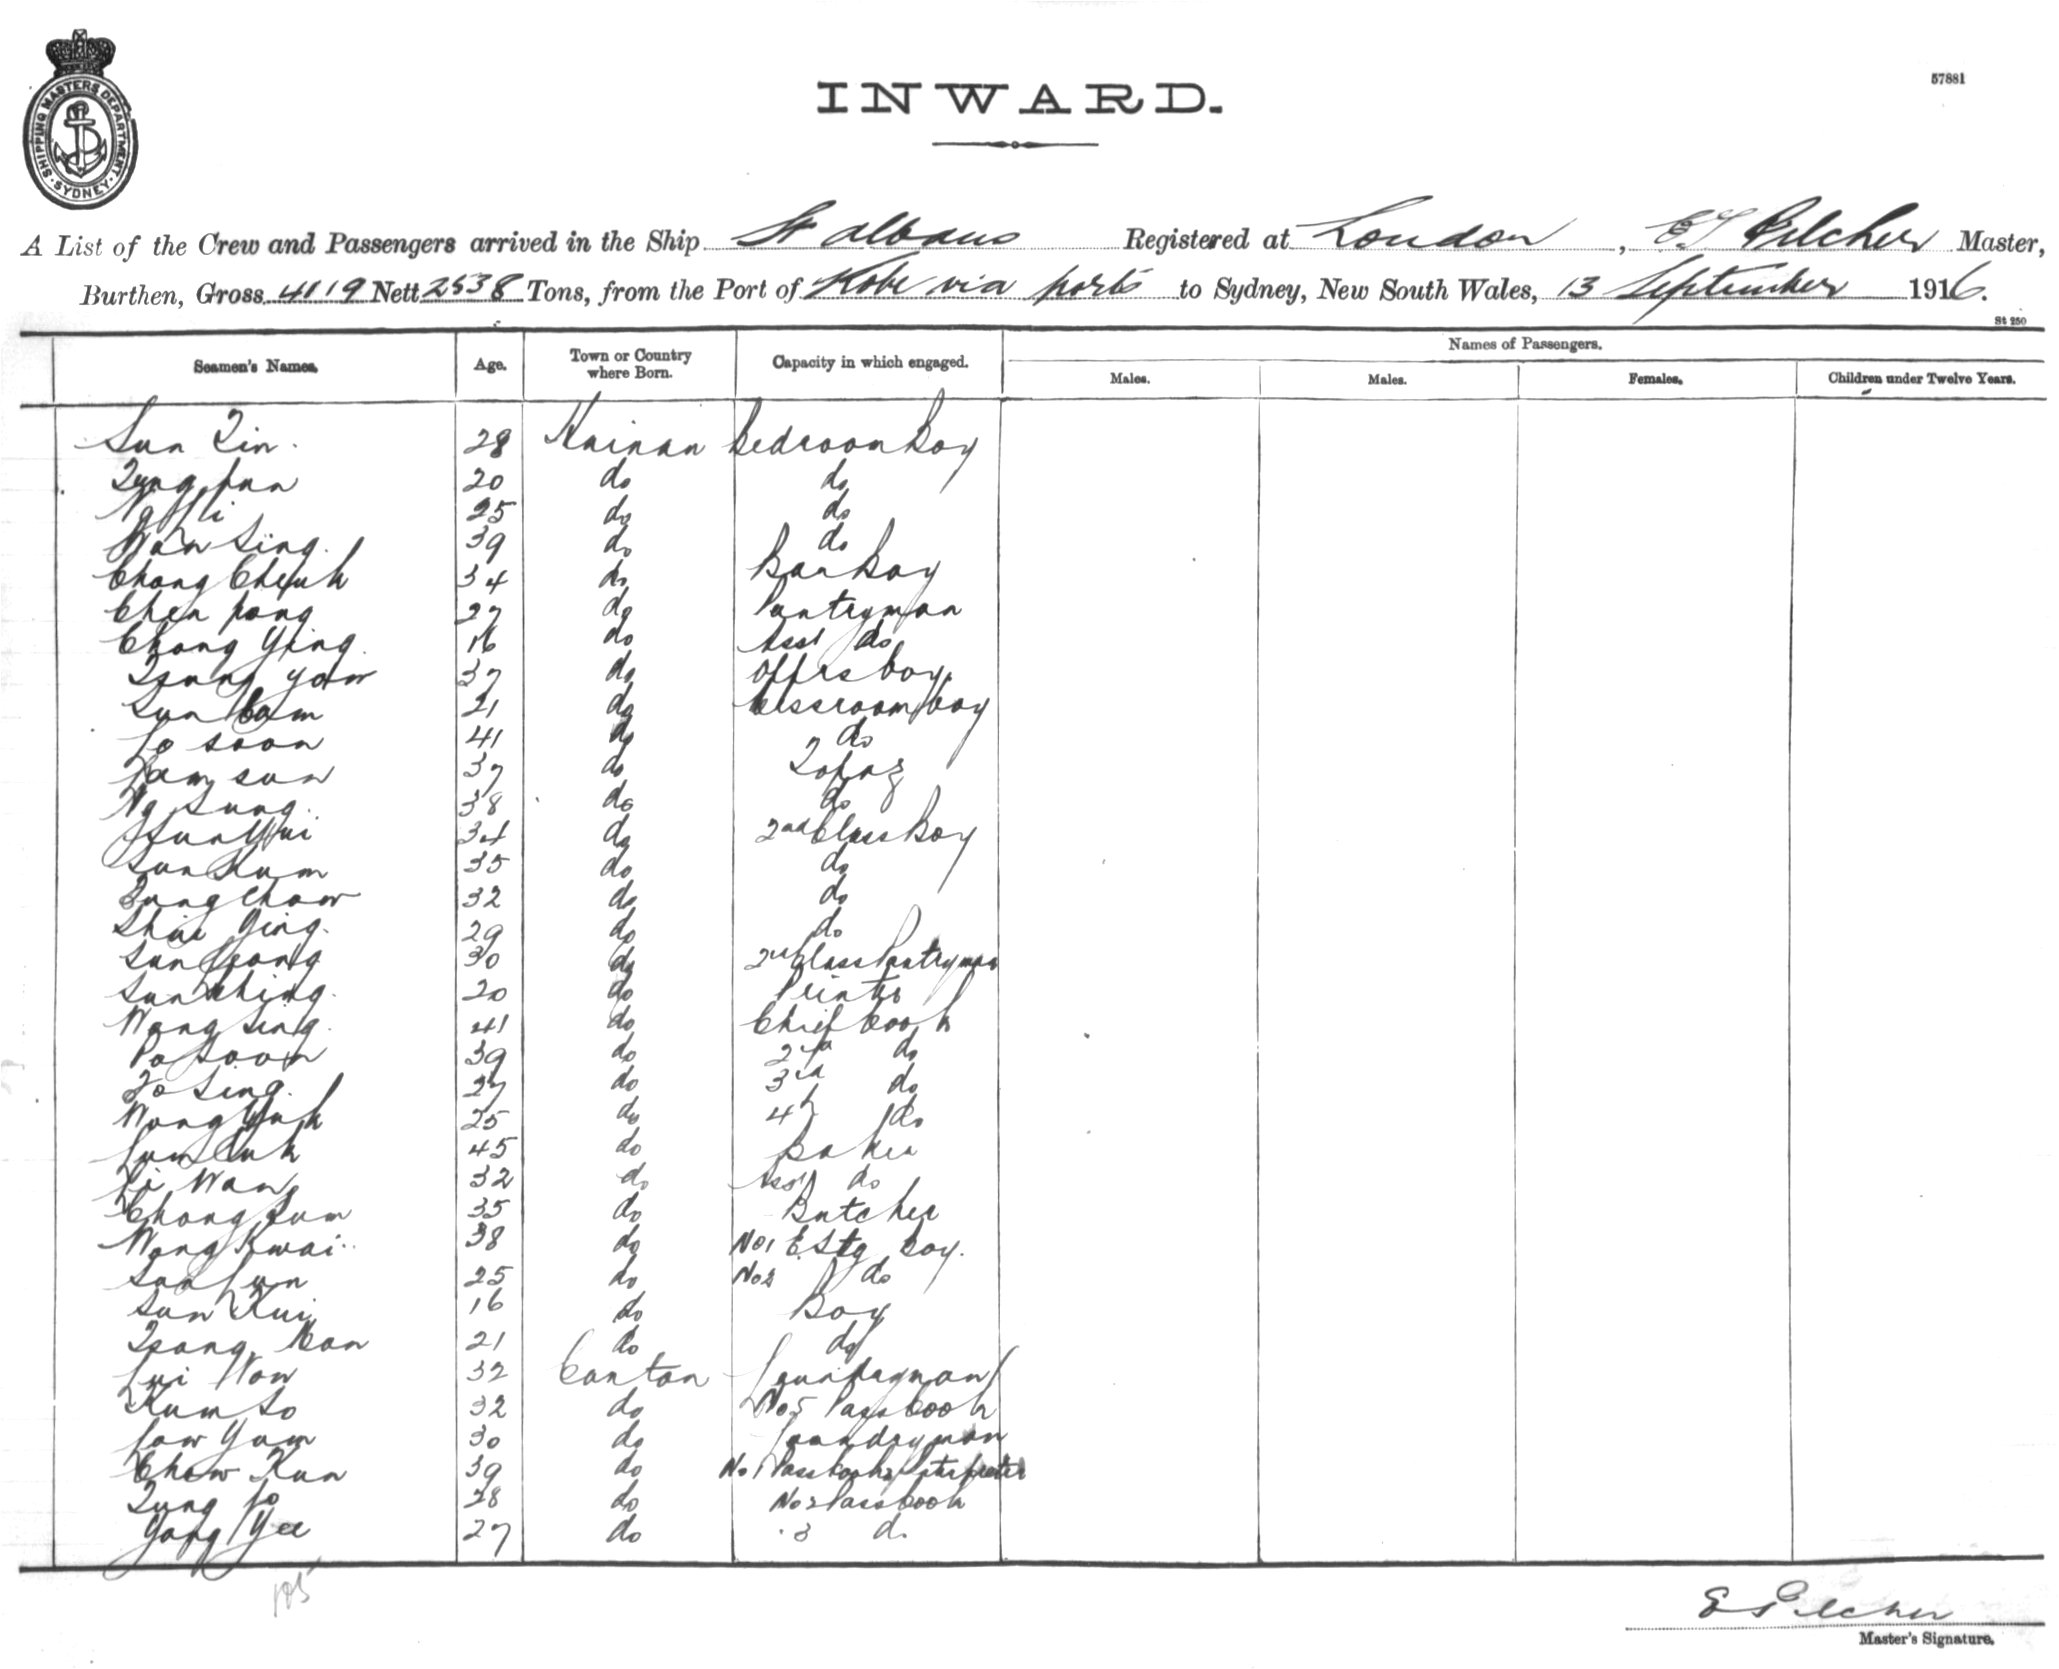 SHIPPING MASTERS DEPARTMENT
SYDNEY
INWARD.
57881
A List of the Crew and Passengers arrived in the Ship St Albans Registered at London, E Pilcher Master,
Burthen, Gross 4119 Nett 2538 Tons, from the Port of Kobe via ports to Sydney, New South Wales, 13 September 1916.
St 250
Seamen's Names. Age. Town or Country where Born. Capacity in which engaged. Names of Passengers.
Males. Males. Females. Children under Twelve Years.
Sun Tin. 28 Hainan Bedroom Boy
20 do do
25 do do
Wan Sing. 39 do do
Chong Cheuk 34 do Bar Boy
Chen pong 27 do Pantryman
Chong Ying. 16 do Asst do
Tsang yow 37 do Offrs boy.
Sun 21 do boy
Lo soon 41 do do
Lam sun 37 do Topaz
Ng Sung. 38 do do
34 do 2nd Class Boy
Sun Kum 35 do do
Tung Chow 32 do do
Shui Ying. 29 do do
Sun 30 do 2nd Class Pantryman
Sun 20 do Printer
Wong Sing. 41 do Chief Cook
Po Soon 39 do 2nd do
To Sing. 27 do 3rd do
Wong 25 do 4th do
45 do Baker
Li Wan 32 do Asst do
Chong Sum 35 do Butcher
Wong Kwai 38 do No1 E. Stg Boy.
Sun Lun 25 do No2 do
Sun Kui 16 do Boy
Tsang 21 do do
Lui Won 32 Canton Laundryman
Kum So 32 do No 5 Pass Cook
Low Yam 30 do Laundryman
Chow Kun 39 do No 1 Pass Cook & Interpreter
Tung Lo 28 do No 2 Pass Cook
Yong Yee 27 do 3 do
E Pilcher
Master's Signature.